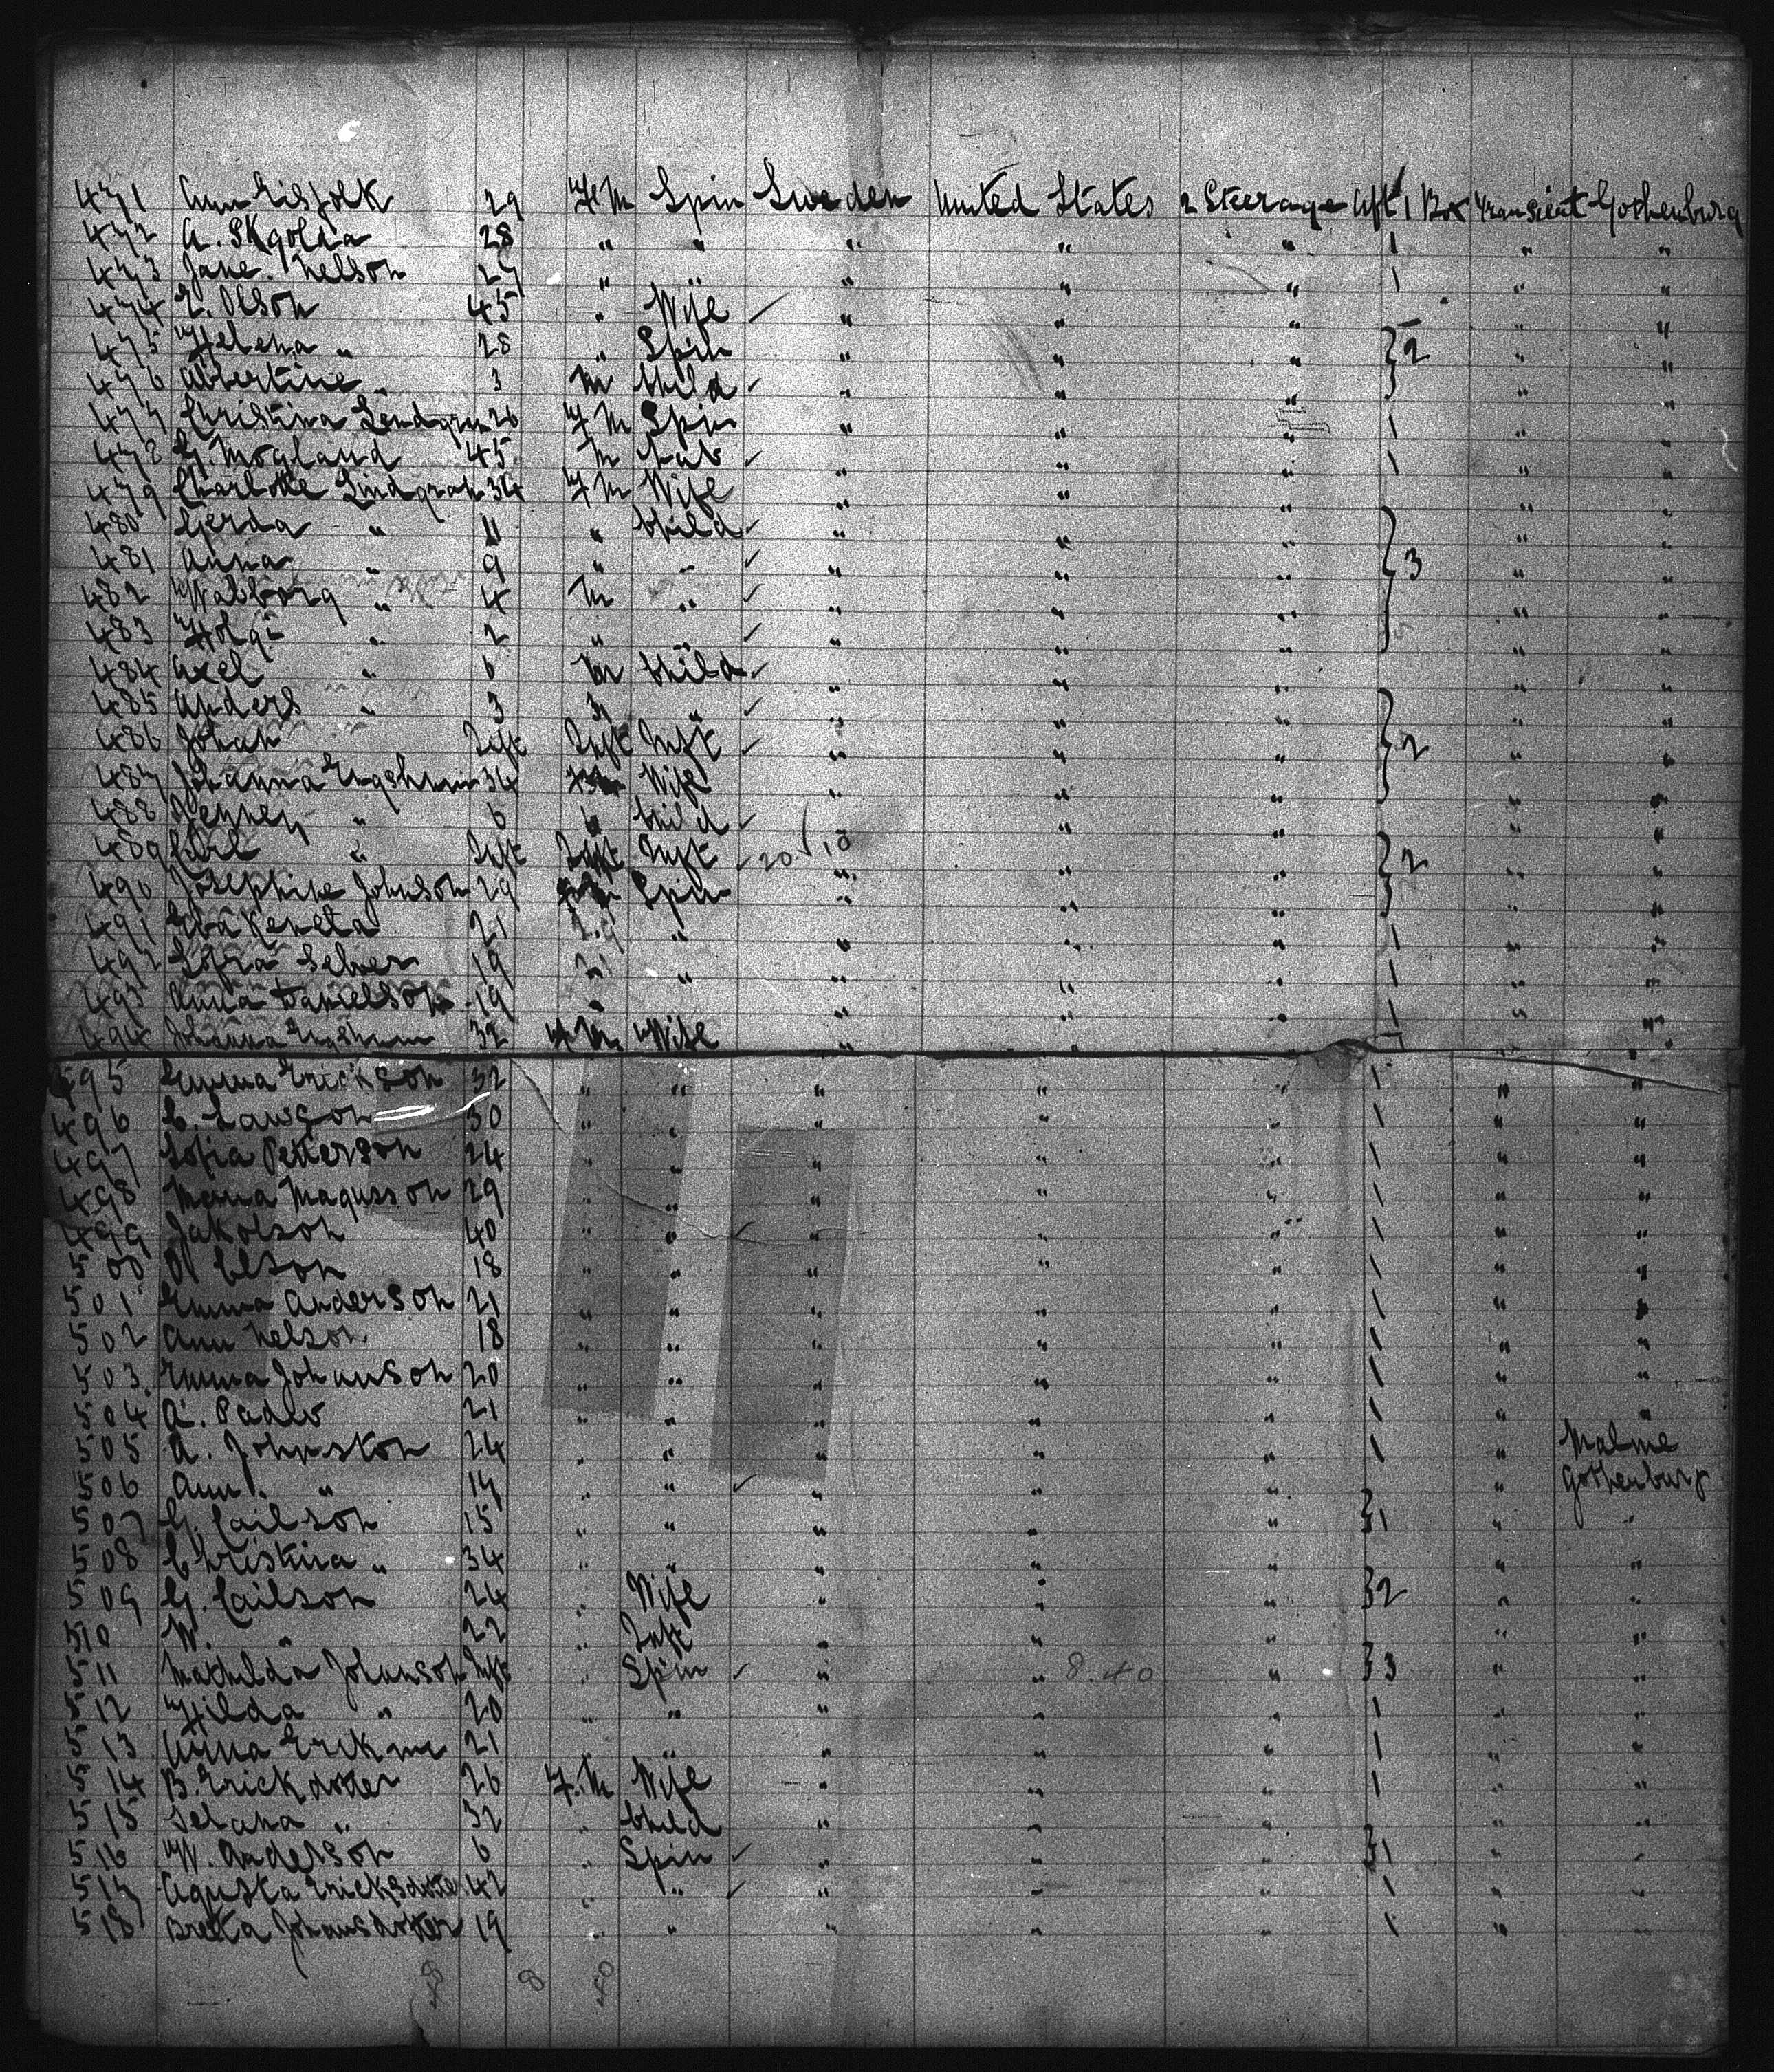 471 Ann Eisfolk 29 F M Spin Sweden United States 2 Steerage Aft 1 Box Transient Gothenburg
472 A. Skgolda 28 " " " " " 1 " "
473 Jane Nelson 27 " " " " " 1 " "
474 E. Olson 45 " Wife ✓ " " " " "
475 Helena " 28 " Spin " " " } 2 " "
476 Albertine " 3 M Child ✓ " " " " "
477 Christina Lendgrun 26 F M Spin " " " 1 " "
478 G. Mogland 45 M Lab ✓ " " " 1 " "
479 Charlotte Lindgran 34 F M Wife " " " " "
480 Gerda " 11 " Child ✓ " " " " "
481 Anna " 9 " " ✓ " " " } 3 " "
482 Walborg " 4 M " ✓ " " " " "
483 Holgi " 2 " " ✓ " " " " "
484 Axel " 6 M Child ✓ " " " " "
485 Anders " 3 " ✓ " " " " "
486 Johan " Inft Inft Inft ✓ " " " } 2 " "
487 Johanna 34 Wife " " " " "
488 " 6 " Child ✓ " " " " "
489 Carl " Inft Inft Inft ✓ 20 / 10 " " } 2 " "
490 Josephine Johnson 29 Spin " " " " "
491 Eba Keneta 21 " " " " 1 " "
492 Sofia Selver 19 " " " " 1 " "
493 Anna Danielson 19 " " " 1 " "
494 Johanna 32 F M Wife " " " 1 " "
495 Emma Erickson 32 " " " " " 1 " "
496 C. Lawson 30 " " " " " 1 " "
497 Sofia Petterson 24 " " " " " 1 " "
498 Maria Magusson 29 " " " " " 1 " "
499 Jakolson 40 " " " " " 1 " "
500 Olson 18 " " " " " 1 " "
501 Emma Anderson 21 " " " " " 1 " "
502 Ann Nelson 18 " " " " " 1 " "
503 Emma Johanson 20 " " " " " 1 " "
504 A. Padlo 21 " " " " " 1 " "
505 A. Johnston 24 " " " " " 1 " Malme
506 Ann " 14 " " ✓ " " " " Gothenburg
507 G. Cailson 15 " " " " " } 1 " "
508 Christina " 34 " " " " " " "
509 G. Cailson 24 " Wife " " " } 2 " "
510 W. " 22 " Inft " " " " "
511 Mathilda Johanson Inft " Spin ✓ " " 8.40 " } 3 " "
512 Hilda " 20 " " " " " 1 " "
513 Anna Erikme 21 " " " " " 1 " "
514 B. Erickdotter 26 F. M Wife " " " 1 " "
515 Selana " 32 " Child " " " " "
516 W. Anderson 6 " Spin ✓ " " " } 1 " "
517 Agusta Ericksdotter 42 " " ✓ " " " 1 " "
518 Breta Johansdotter 19 " " " " " 1 " "
48 8 40